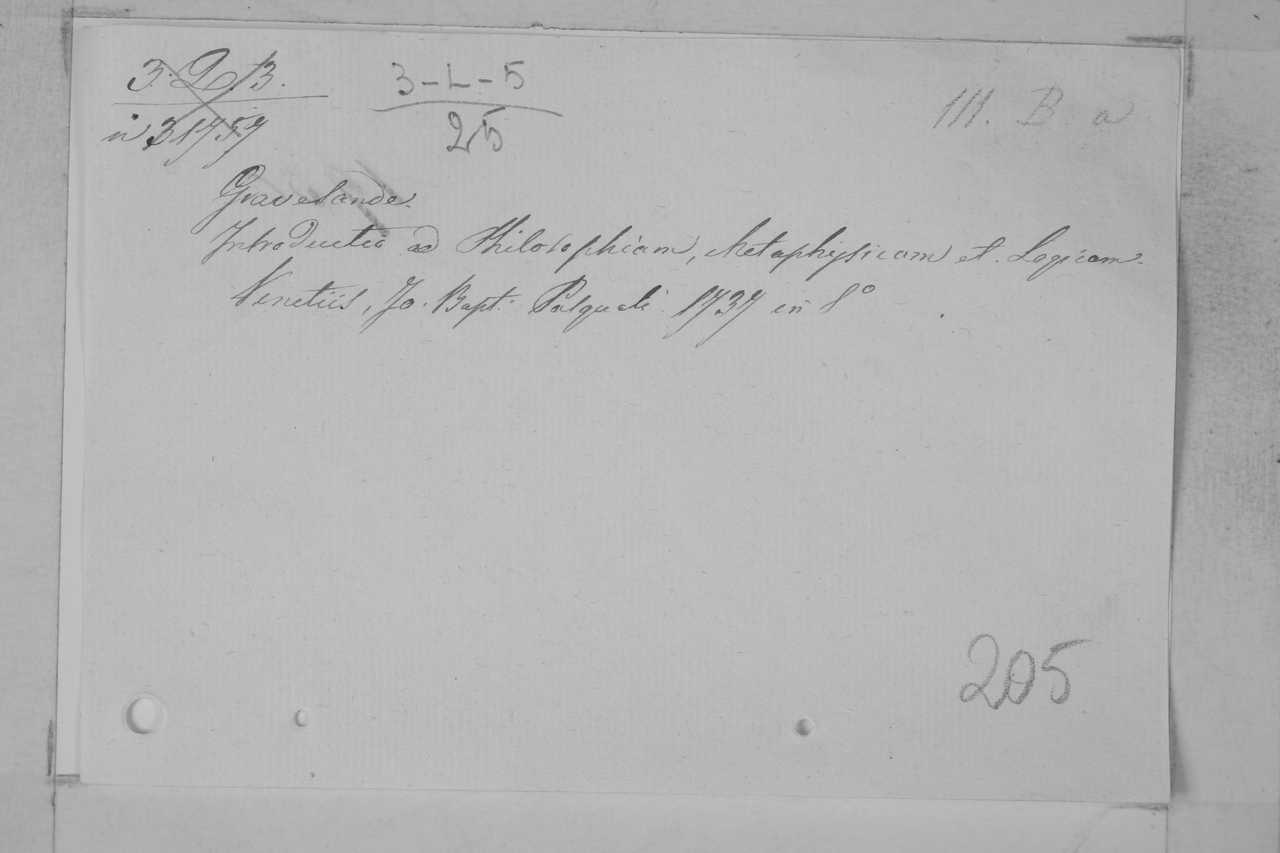 3-L-5
25
III. B a
Gravesande.
Introductio ad Philosophiam, Metaphysicam et Logicam.
Venetiis, Jo. Bapt. Pasquali 1737 in 8º
205